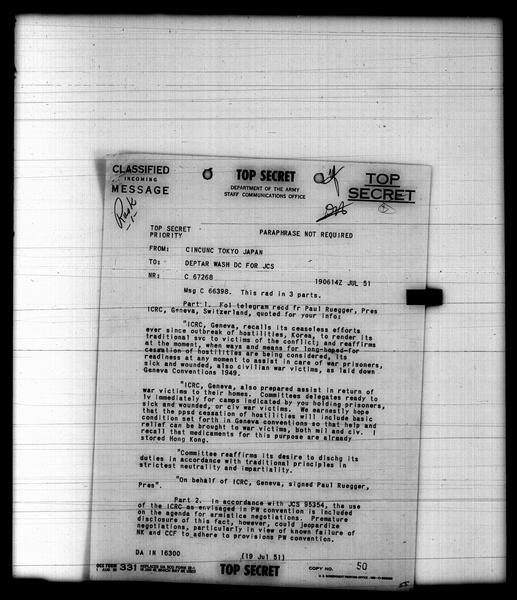 CLASSIFIED
INCOMING
MESSAGE
TOP SECRET
DEPARTMENT OF THE ARMY
STAFF COMMUNICATIONS OFFICE
TOP
SECRET
TOP SECRET
PRIORITY
PARAPHRASE NOT REQUIRED
FROM: CINCUNC TOKYO JAPAN
TO: DEPTAR WASH DC FOR JCS
NR: C 67268 190614Z JUL 51
Msg C 66398. This rad in 3 parts.
Part 1. Fol telegram recd fr Paul Ruegger, Pres
ICRC, Geneva, Switzerland, quoted for your info:
"ICRC, Geneva, recalls its ceaseless efforts
ever since outbreak of hostilities, Korea, to render its
traditional svc to victims of the conflict; and reaffirms
at the moment, when ways and means for long-hoped-for
cessation of hostilities are being considered, its
readiness at any moment to assist in care of war prisoners,
sick and wounded, also civilian war victims, as laid down
Geneva Conventions 1949.
"ICRC, Geneva, also prepared assist in return of
war victims to their homes. Committees delegates ready to
lv immediate for camps indicated by you holding prisoners,
sick and wounded, or civ war victims. We earnestly hope
that the ppsd cessation of hostilities will include basic
condition set forth in Geneva conventions so that help and
relief can be brought to war victims, both mil and civ. I
recall that medicaments for this purpose are already
stored Hong Kong.
"Committee reaffirms its desire to dischg its
duties in accordance with traditional principles in
strictest neutrality and impartiality.
"On behalf of ICRC, Geneva, signed Paul Ruegger,
Pres".
Part 2. In accordance with JCS 95354, the use
of the ICRC as envisaged in PW convention is included
on the agenda for armistice negotiations. Premature
disclosure of this fact, however, could jeopardize
negotiations, particularly in view of known failure of
NK and CCF to adhere to provisions PW convention.
DA IN 16300 (19 Jul 51)
331
TOP SECRET
COPY NO. 50